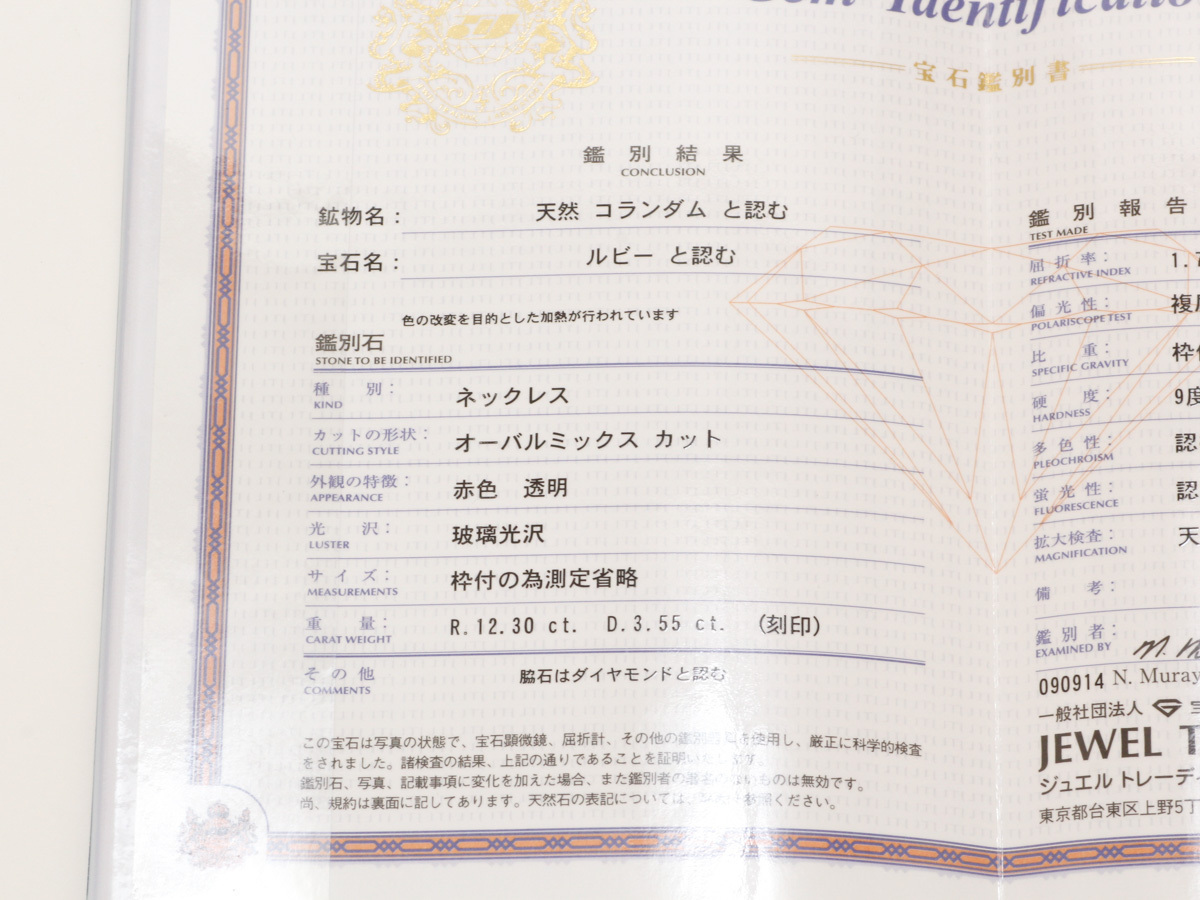 Identification
宝石鑑別書
鑑別結果
CONCLUSION
鉱物名： 天然 コランダム と認む
宝石名： ルビー と認む
色の改変を目的とした加熱が行われています
鑑別石
STONE TO BE IDENTIFIED
種 別： ネックレス
KIND
カットの形状： オーバルミックス カット
CUTTING STYLE
外観の特徴： 赤色 透明
APPEARANCE
光 沢： 玻璃光沢
LUSTER
サイズ： 枠付の為測定省略
MEASUREMENTS
重 量： R.12.30 ct. D.3.55 ct. (刻印)
CARAT WEIGHT
その他 脇石はダイヤモンドと認む
COMMENTS
この宝石は写真の状態で、宝石顕微鏡、屈折計、その他の鑑別 を使用し、厳正に科学的検査
をされました。諸検査の結果、上記の通りであることを証明いたします。
鑑別石、写真、記載事項に変化を加えた場合、また鑑別者の署名のないものは無効です。
尚、規約は裏面に記してあります。天然石の表記については 参照ください。
鑑別報告
TEST MADE
屈折率： 1.7
REFRACTIVE INDEX
偏光性： 複
POLARISCOPE TEST
比 重： 枠
SPECIFIC GRAVITY
硬 度： 9度
HARDNESS
多色性： 認
PLEOCHROISM
蛍光性： 認
FLUORESCENCE
拡大検査： 天
MAGNIFICATION
備 考：
鑑別者：
EXAMINED BY
090914 N. Muray
一般社団法人
JEWEL T
ジュエル トレーデ
東京都台東区上野5丁